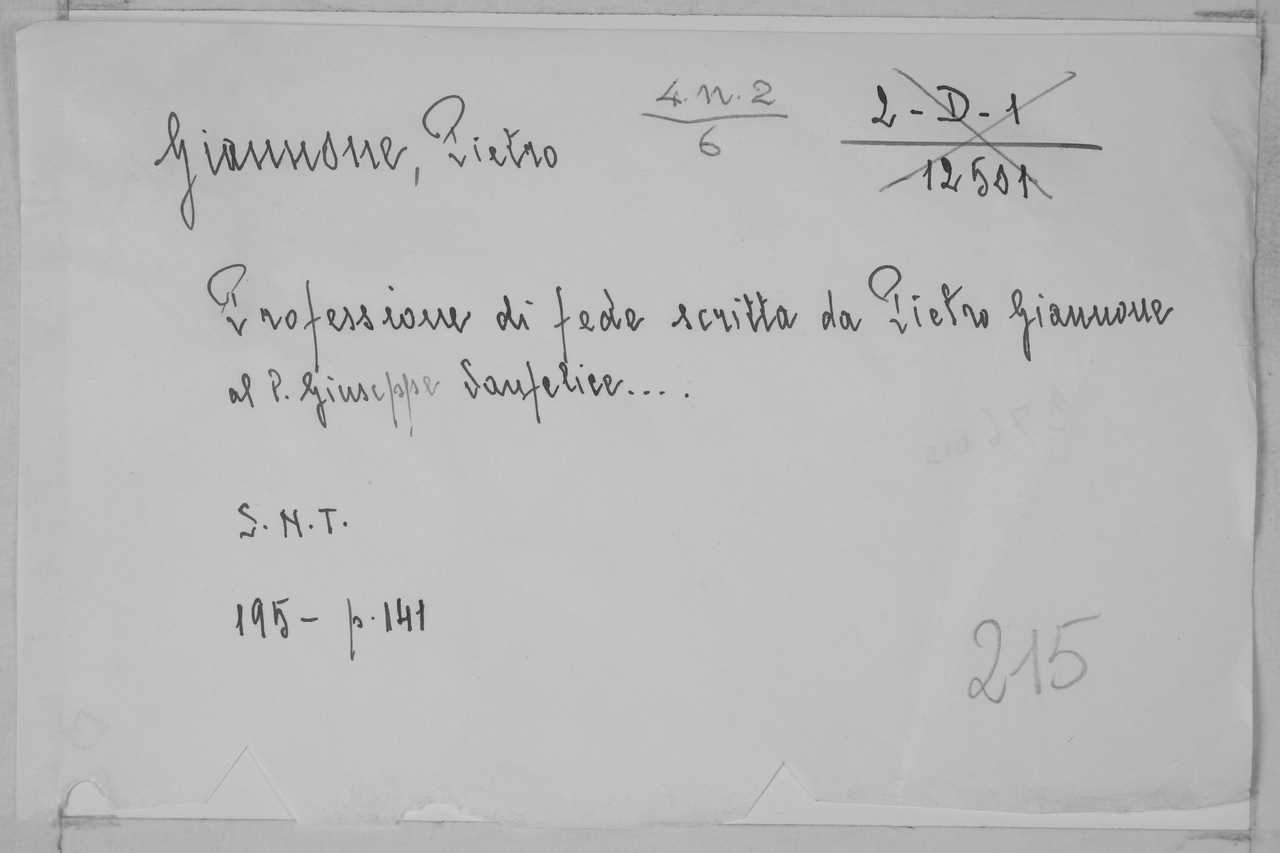 Giannone, Pietro
4.n.2
6
2-D-1
12501
Professione di fede scritta da Pietro Giannone
al P. Giuseppe Sanfelice....
S.N.T.
195- p.141
215